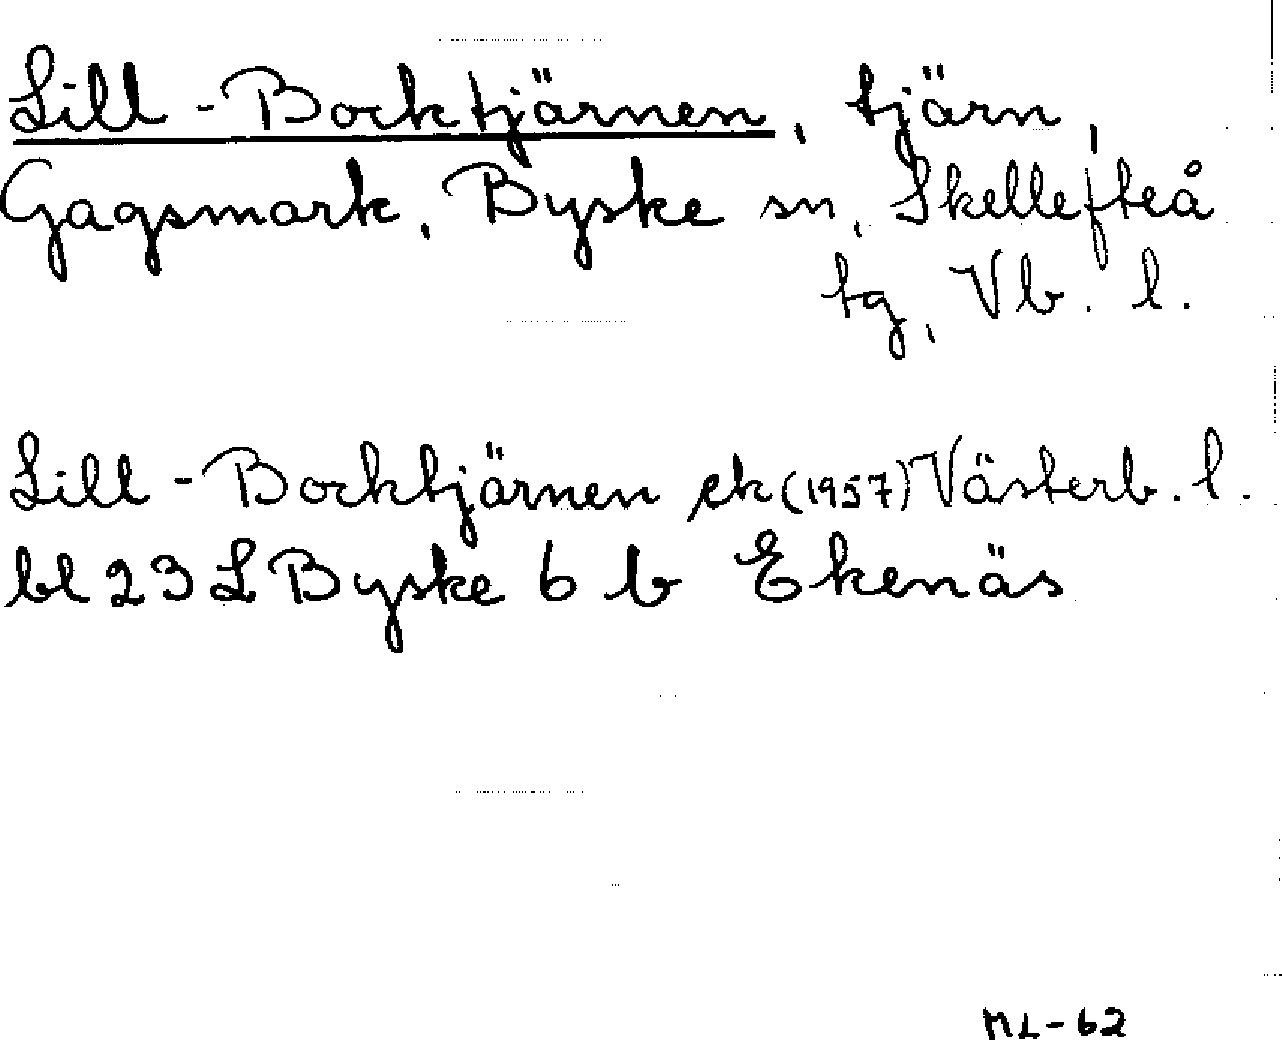 Lill-Bocktjärnen, tjärn,
Gagsmark, Byske sn, Skellefteå
tg, Vb. l.
Lill-Bocktjärnen ek (1957) Västerb. l.
bl 23 L Byske 6 b Ekenäs
ML-62